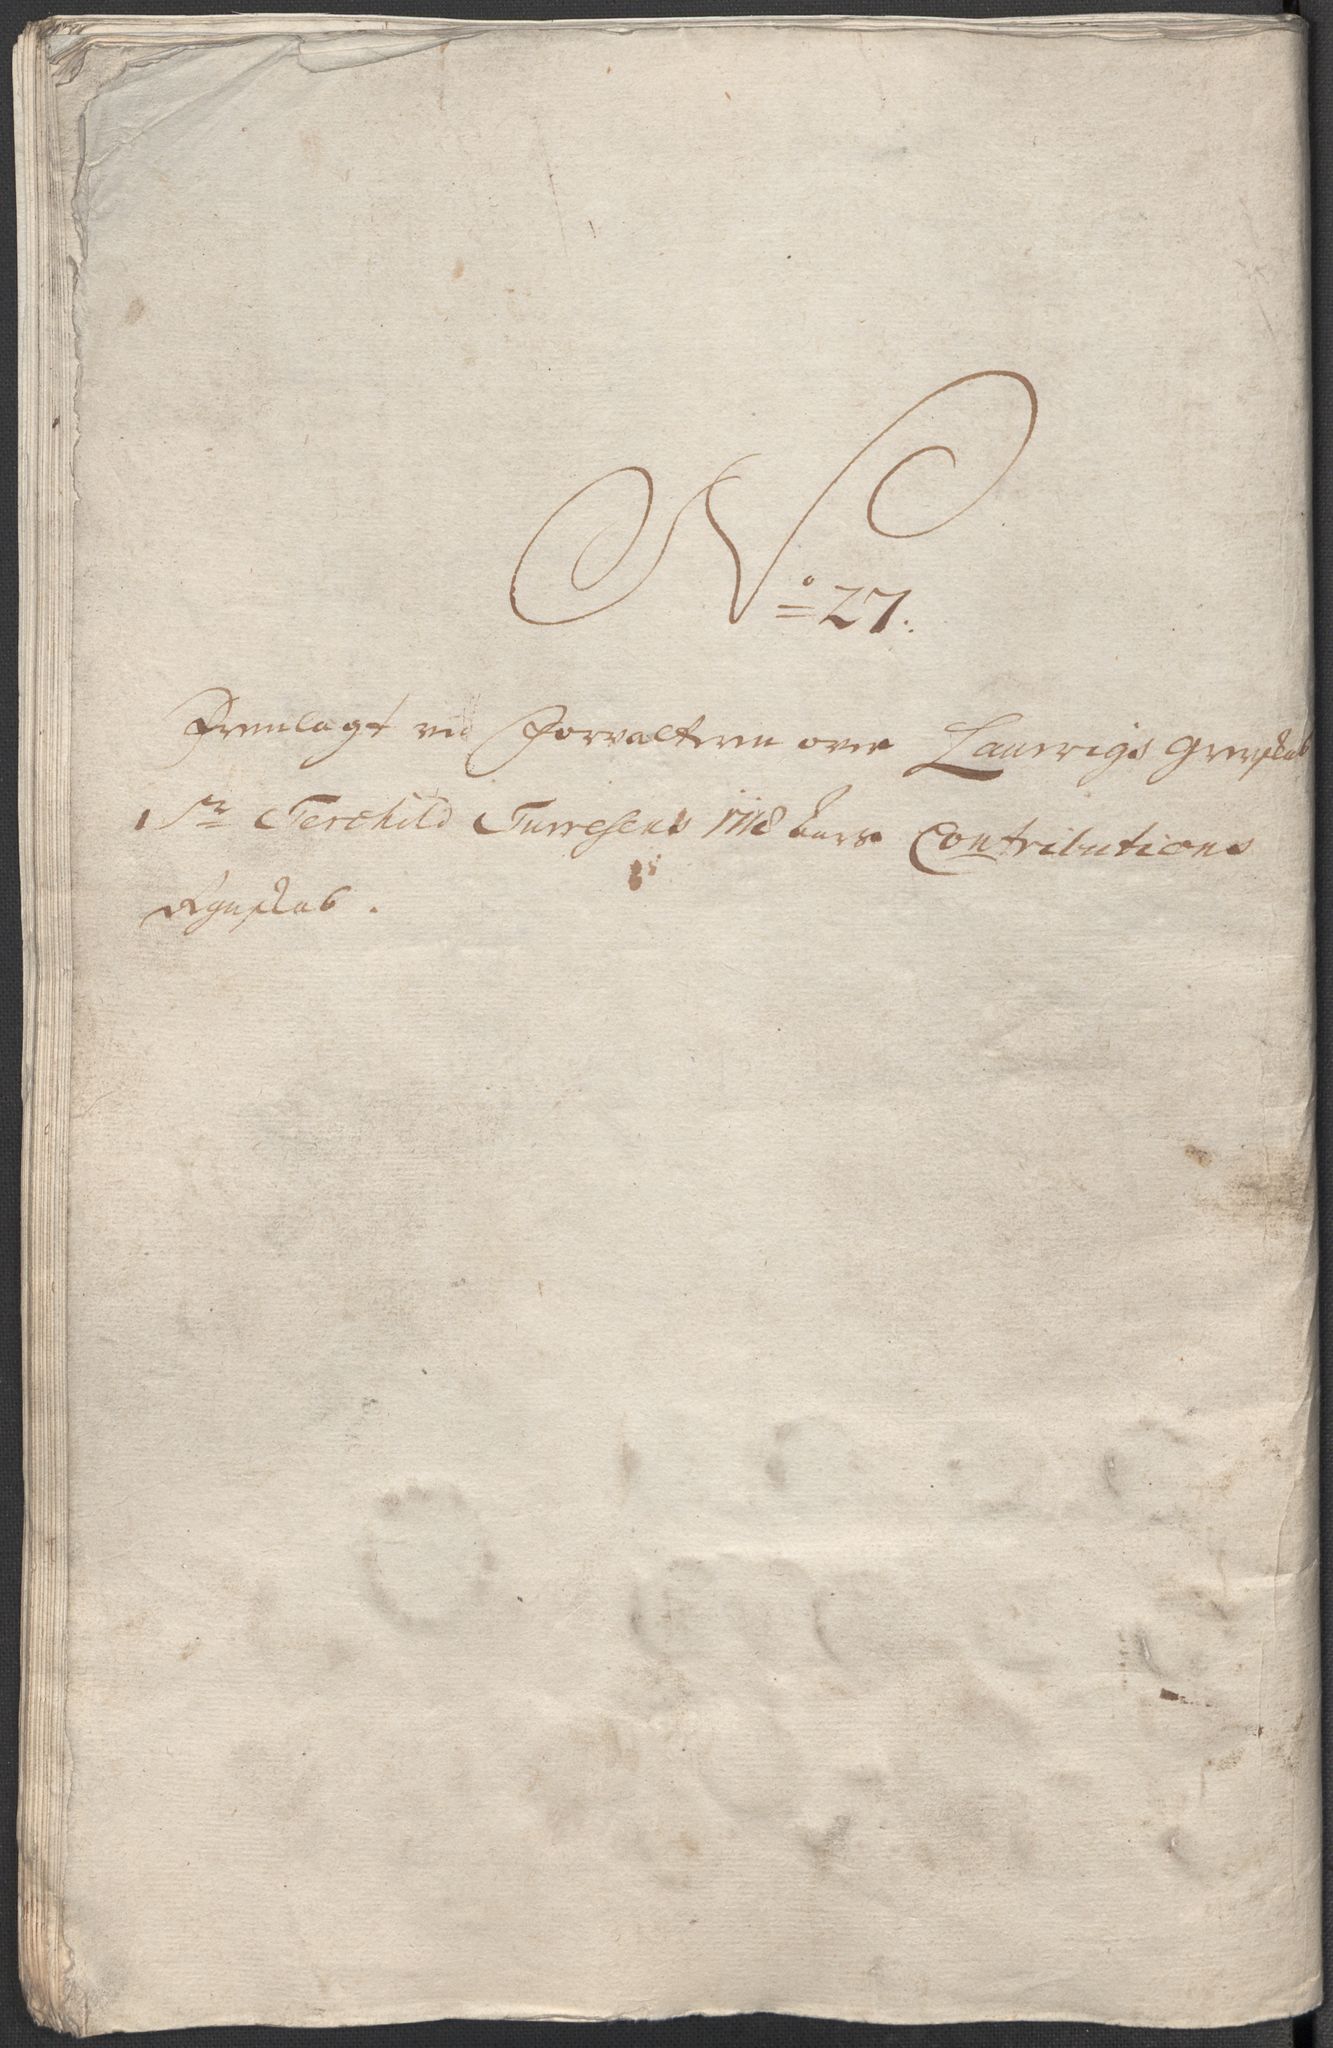 No 27.
Fremlagt ved Forvalteren over Laurvigs Grevskab
Sr Terchild Turresens 1718 Aars Contributions
Regnskab.